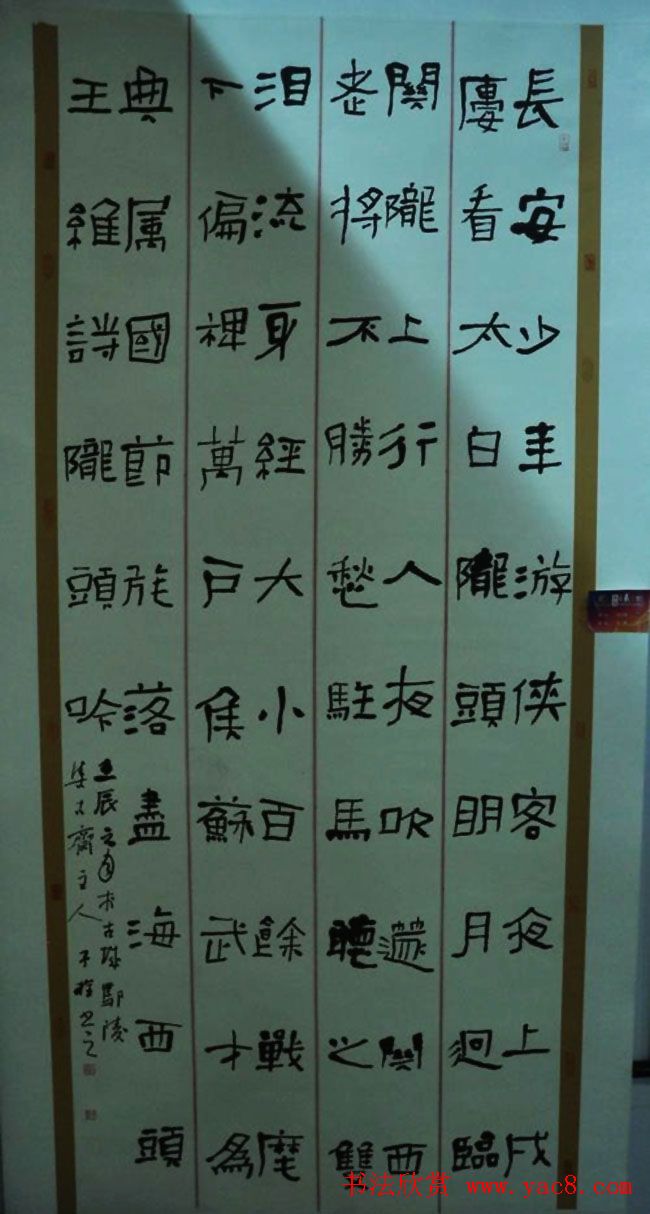 長安少年游侠客夜上戍
廔看太白隴頭明月迥臨
關隴上行人夜吹篴關西
老將不勝愁駐馬聽之雙
泪流身經大小百餘戰麾
下偏裨萬戶侯蘇武才為
典属國節旄落盡海西頭
王維詩隴頭吟
壬辰之 古城鄢陵
集古齋主人
书法欣赏 www.yac8.com